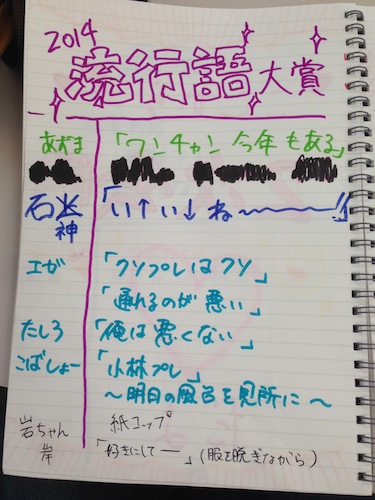 2014
流行語大賞
あずま 「ワンチャン今年もある」
石神 「い↑い↓ね〜〜〜〜!!」
エガ 「クソプレはクソ」
「通れるのが悪い」
たしろ 「俺は悪くない」
こばしょー 「小林プレ」
〜明日の風呂を見所に〜
岩ちゃん 紙コップ
岸 「好きにしてー」(服を脱ぎながら)